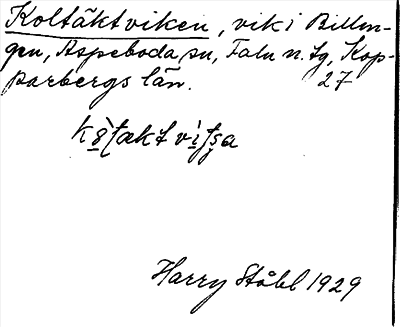 Koltäktviken, vik i Billin-
gen, Aspeboda sn, Falu n. tg, Kop-
parbergs län. 27
Harry Ståhl 1929